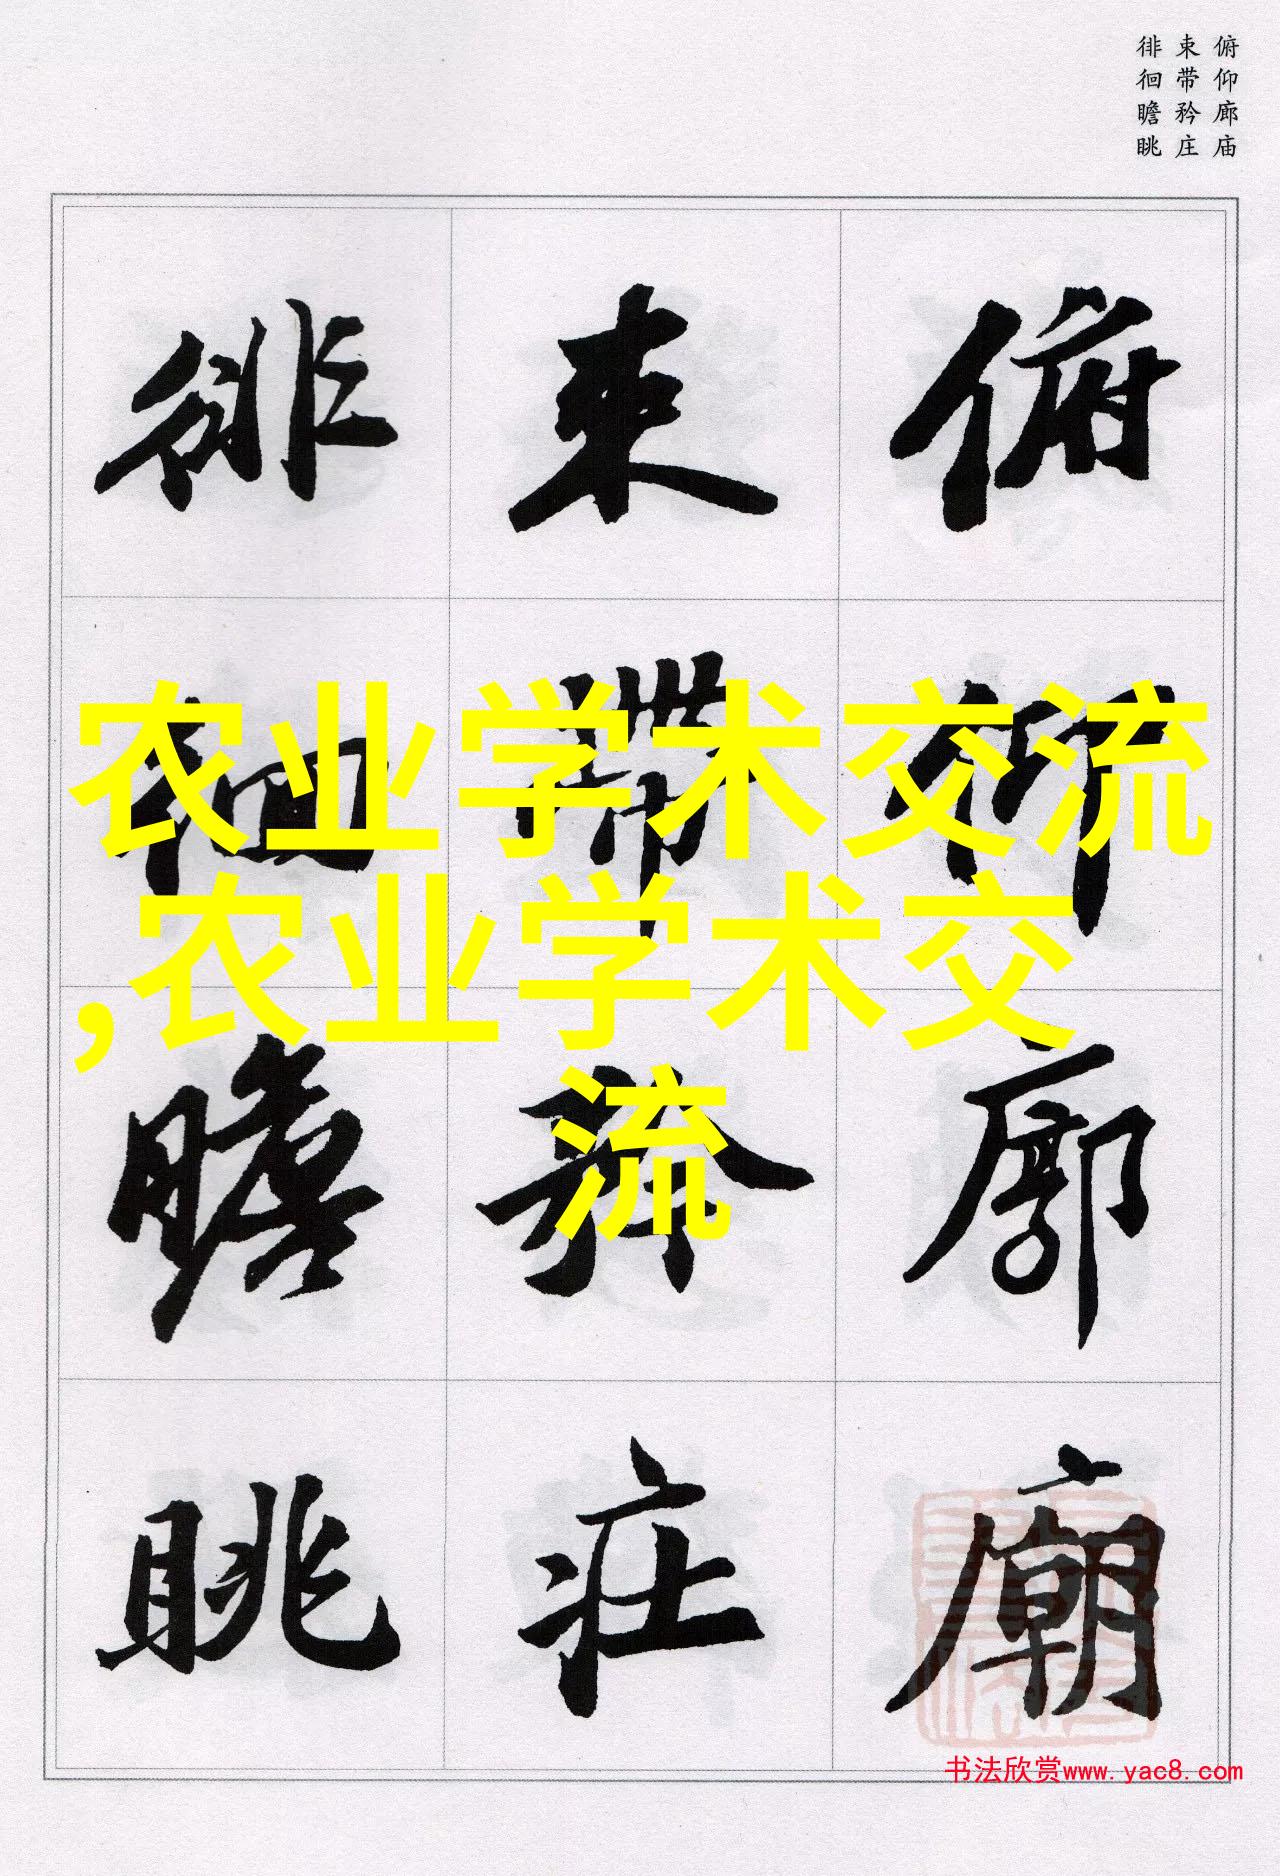 俯仰廊庙
束带矜庄
徘徊瞻眺
俯仰廊廟
束帶矜莊
徘徊瞻眺
农业学术交流
,农业学术交
流
书法欣赏www.yac8.com